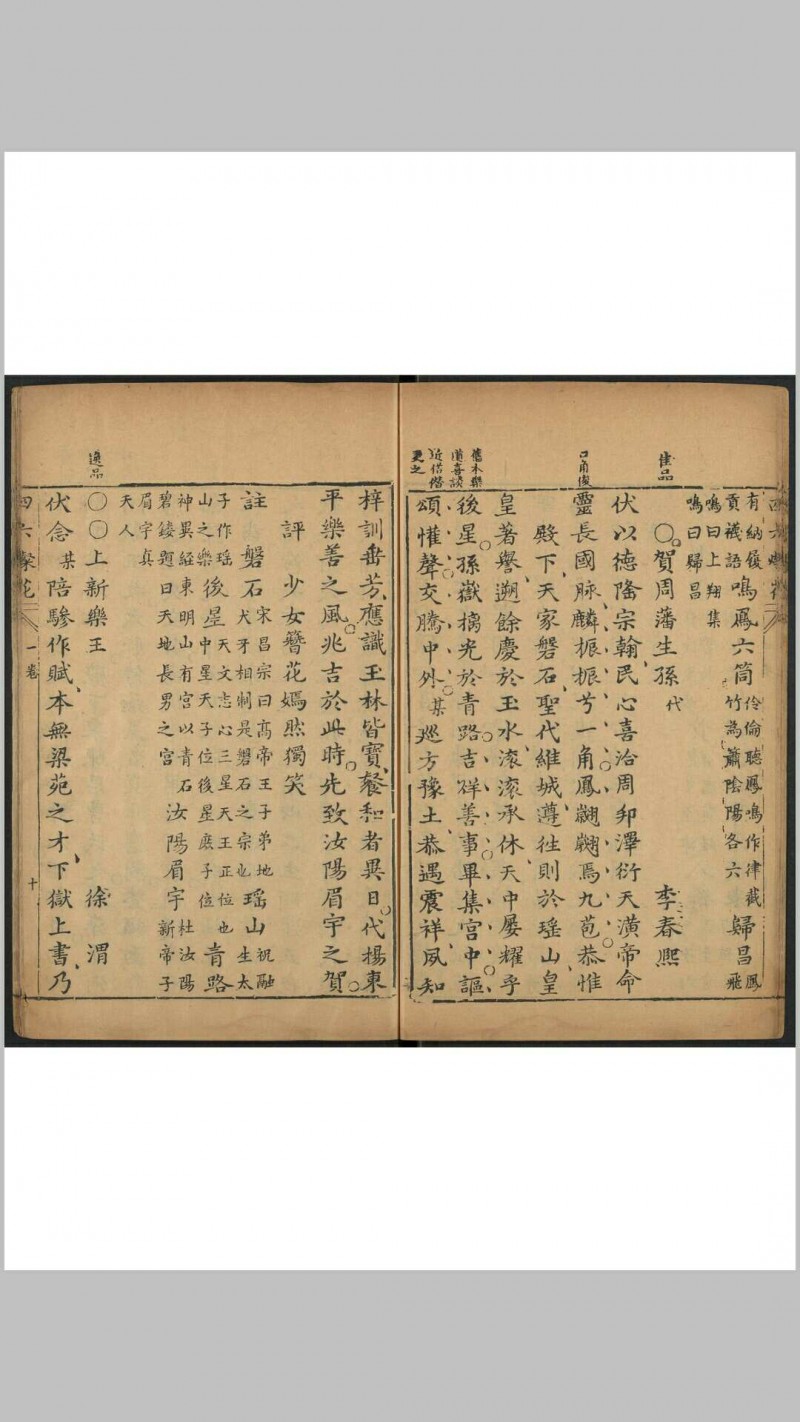 有納後鳴鳳六筒伶倫聽鳳鳴作律截歸昌鳳
貢襪語竹為簫陰陽各六飛
鳴曰上翔集
鳴曰歸昌
佳品
○賀周藩生孫代 李春熙
伏以德隆宗翰民心喜洽周邦澤衍天潢帝命
口角俊
靈長國脉麟振振兮一角鳳翽翽焉九苞恭惟
殿下天家磐石聖代維城遵往則於瑤山皇
皇著譽遡餘慶於玉水滚滚承休天中屡耀乎
後星孫嶽摛光於青路吉祥善事畢集宮中謳
舊本樂
道喜談
近借偕
更之
頌懽聲交騰中外某廵方豫土恭遇震祥夙知
梓訓垂芳應識玉林皆寶發和者異日代揚東
平樂善之風兆吉於此時先致汝陽眉宇之賀
評 少女簪花嫣然獨笑
註 磐石宋昌宗曰髙帝王子弟地犬牙相制是磐石之宗也瑶山祝融生太
子作瑶山之樂後星天文志心三星天王正位也中星天子位後星庶子位青路
神異經東明山有宮以青石碧鏤題曰天地長男之宮汝陽眉宇杜汝陽新帝子
眉宇真
天人
逸品
○○上新樂王 徐渭
伏念某陪驂作賦本無梁苑之才下獄上書乃
一卷
十